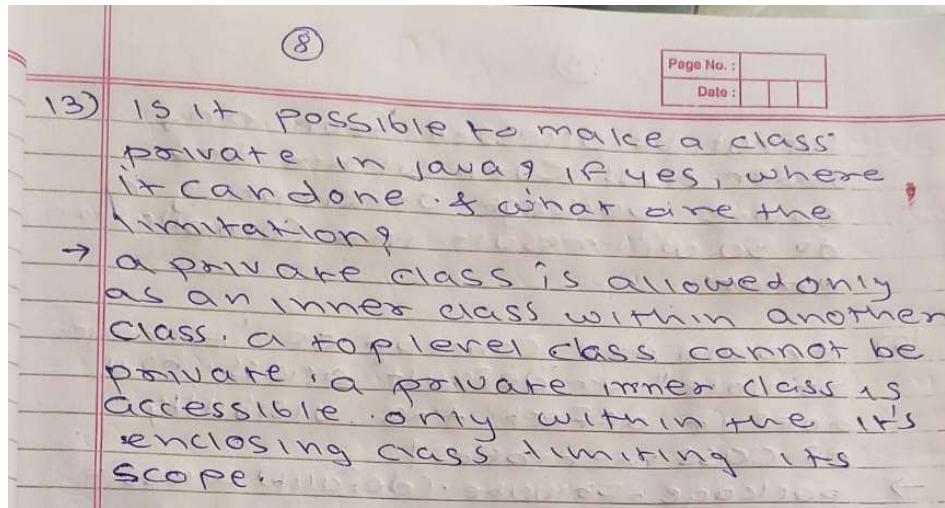 8
Page No. :
Date :
13) Is it possible to make a class
private in java? if yes, where
it can done & what are the
limitation?
→ a private class is allowed only
as an inner class within another
class. a top level class cannot be
private. a private inner class is
accessible only within the it's
enclosing class limiting its
scope.